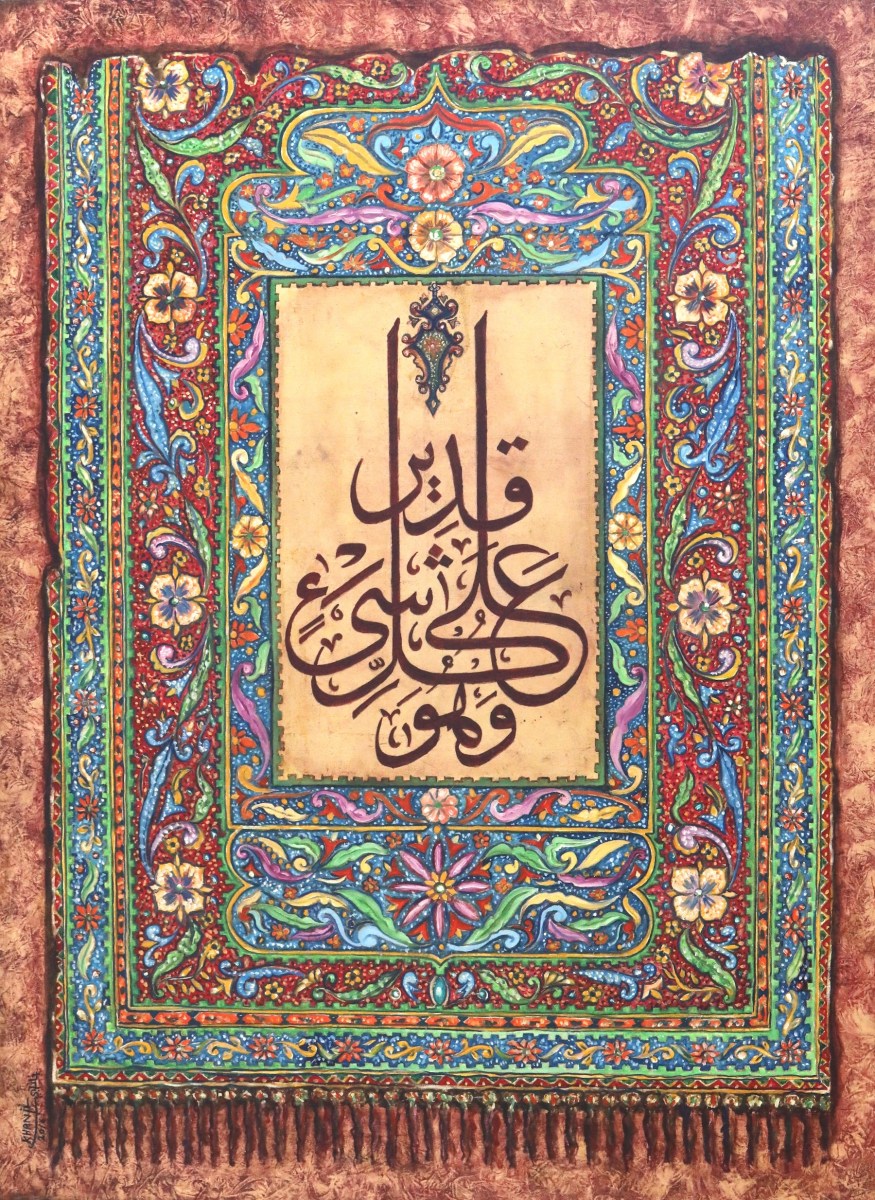 وَهُوَ عَلَى كُلِّ شَىءٍ قَدِير